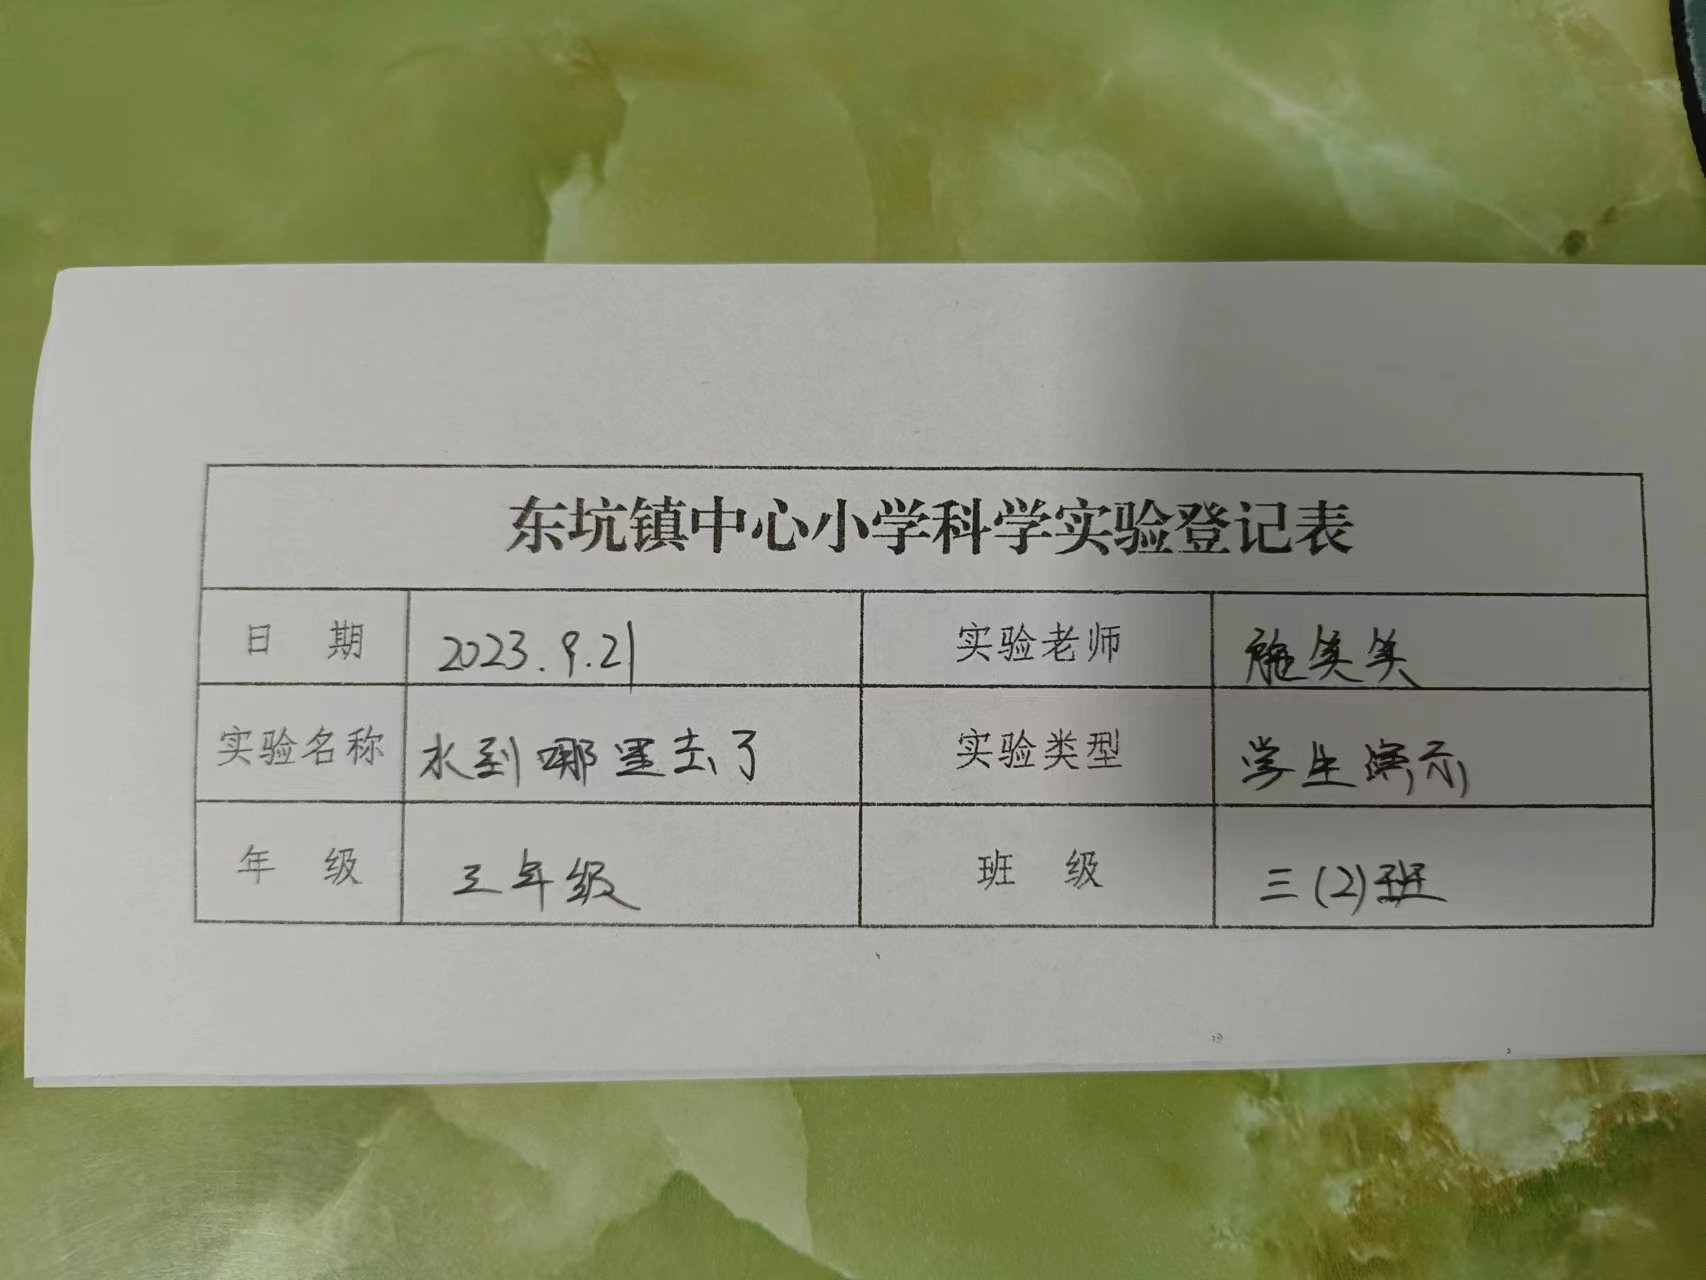 东坑镇中心小学科学实验登记表
日 期 2023.9.21 实验老师 施笑笑
实验名称 水到哪里去了 实验类型 学生演示
年 级 三年级 班 级 三(2)班